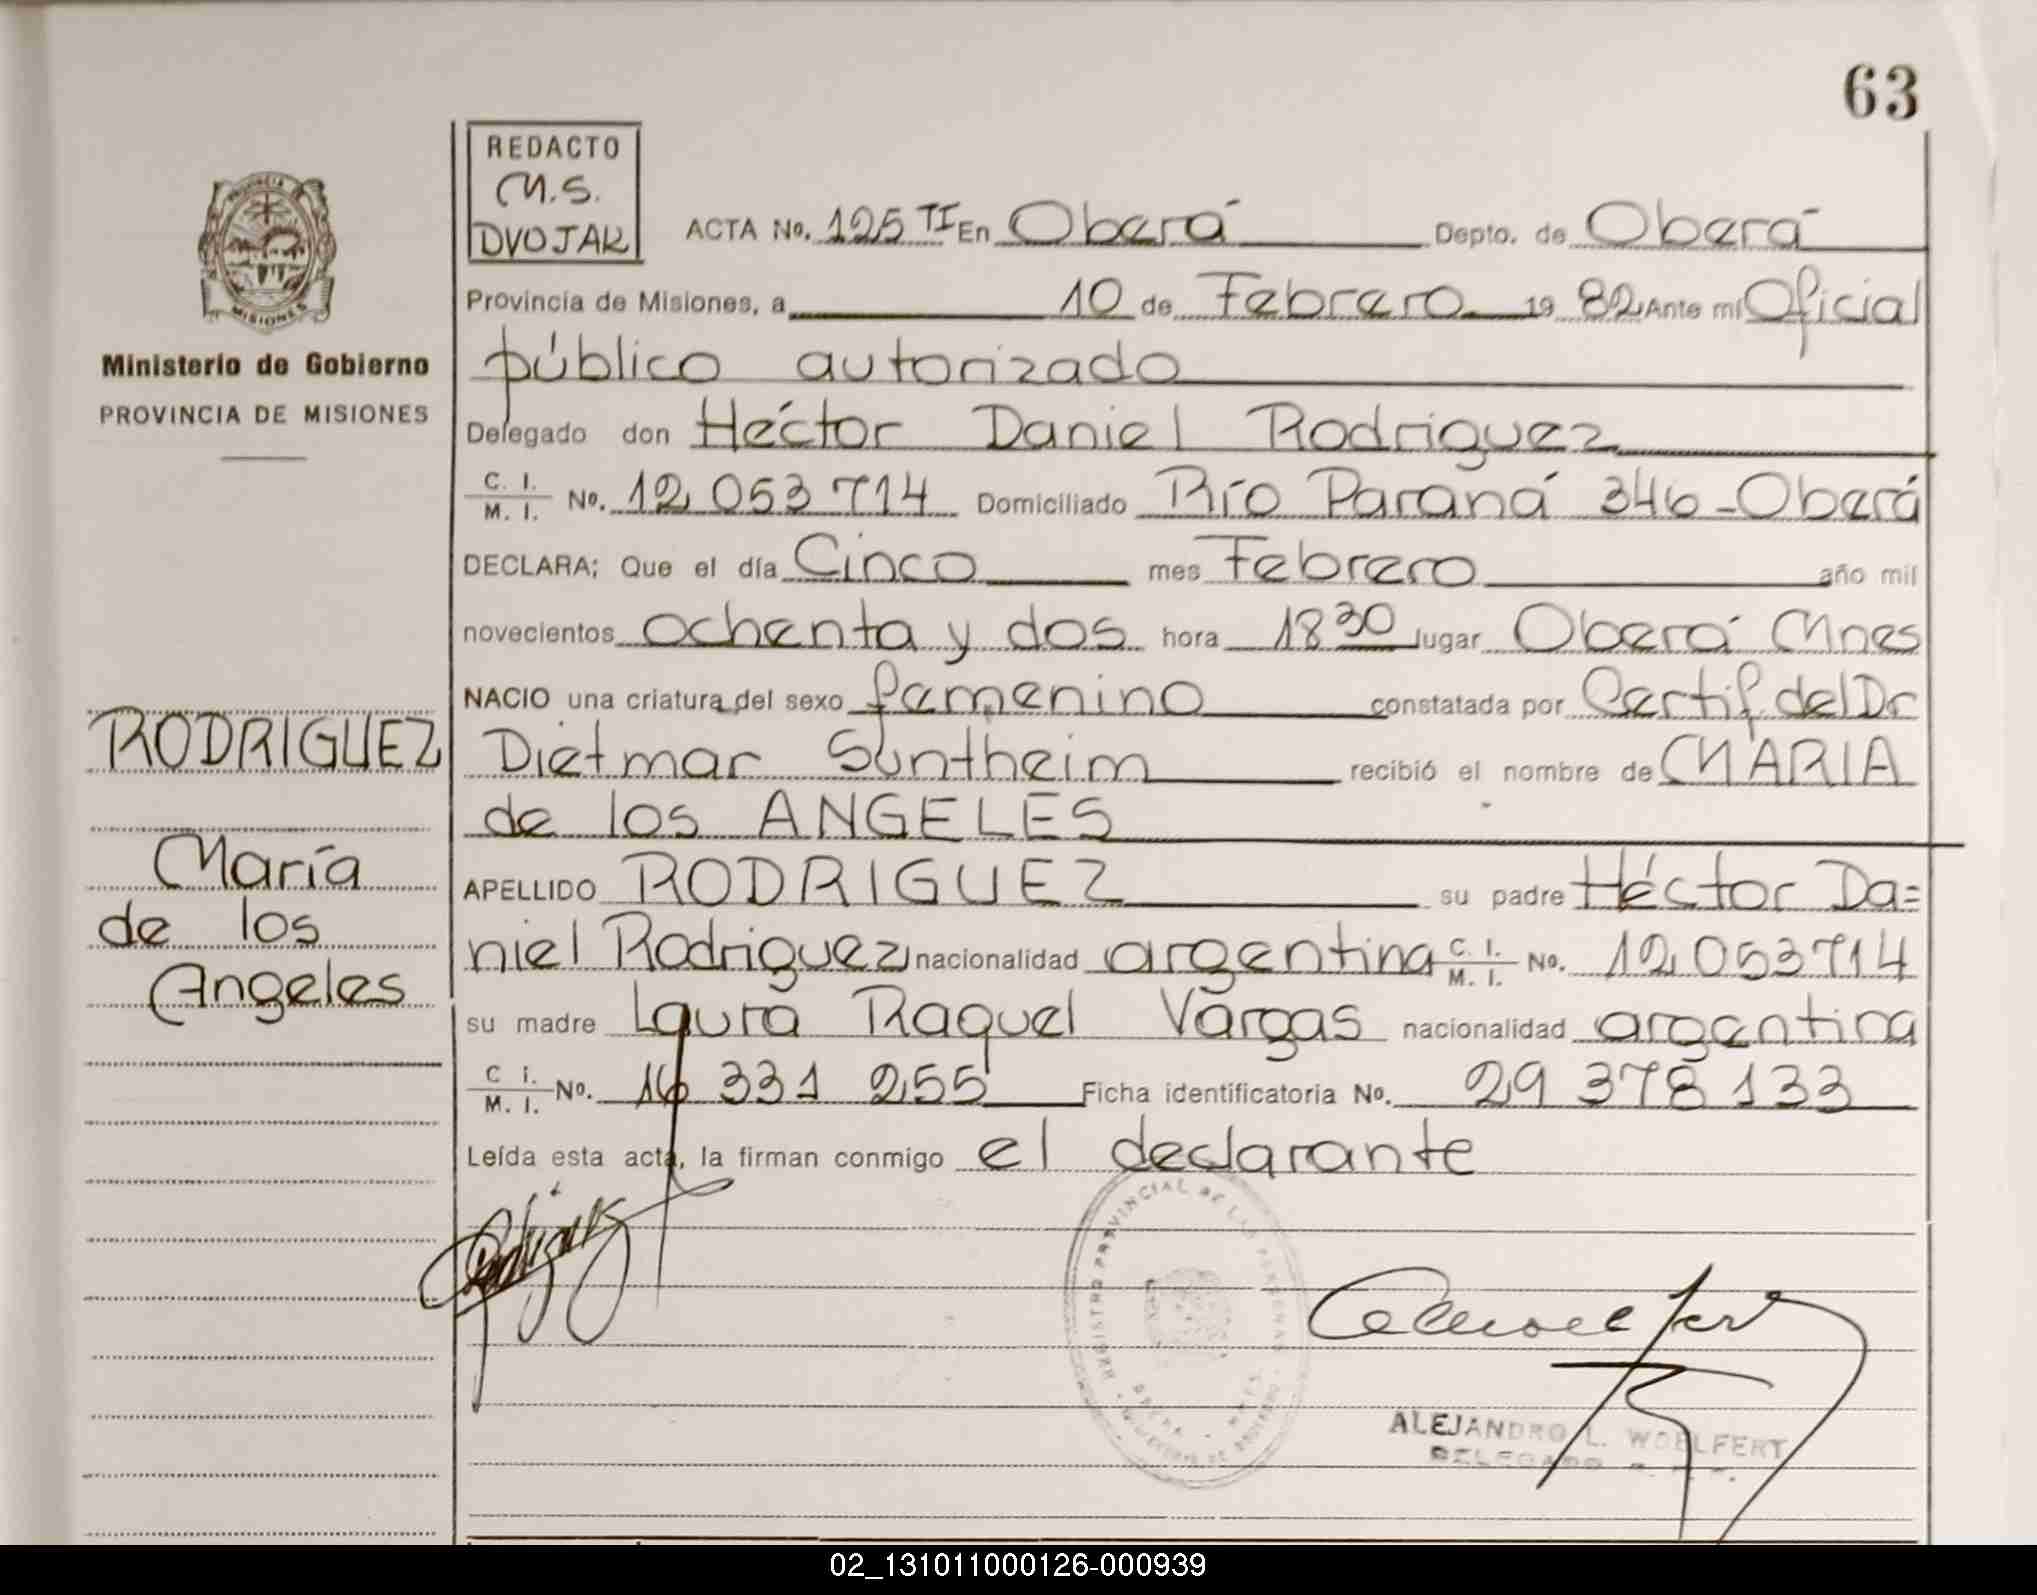 63
REDACTO
M.S.
DVOJAK
ACTA No. 125 TI En Oberá Depto. de Oberá
Provincia de Misiones, a 10 de Febrero 19 82 Ante mi Oficial
público autorizado
Ministerio de Gobierno
PROVINCIA DE MISIONES
Delegado don Héctor Daniel Rodriguez
C. I. M. I. No. 12 053 714 Domiciliado Río Paraná 346 - Oberá
DECLARA; Que el día Cinco mes Febrero año mil
novecientos ochenta y dos hora 18 30 lugar Oberá Mnes
NACIO una criatura del sexo femenino constatada por Certif. del Dr
RODRIGUEZ
Dietmar Suntheim recibió el nombre de MARIA
de los ANGELES
María
de los
Angeles
APELLIDO RODRIGUEZ su padre Héctor Da=
niel Rodriguez nacionalidad argentina C. I. M. I. No. 12 053 714
su madre Laura Raquel Vargas nacionalidad argentina
C. I. M. I. No. 16 331 255 Ficha identificatoria No. 29 378 133
Leída esta acta, la firman conmigo el declarante
REGISTRO PROVINCIAL DE LAS PERSONAS
ALEJANDRO L. WOELFERT
DELEGADO
PROVINCIA
MISIONES
02_131011000126-000939